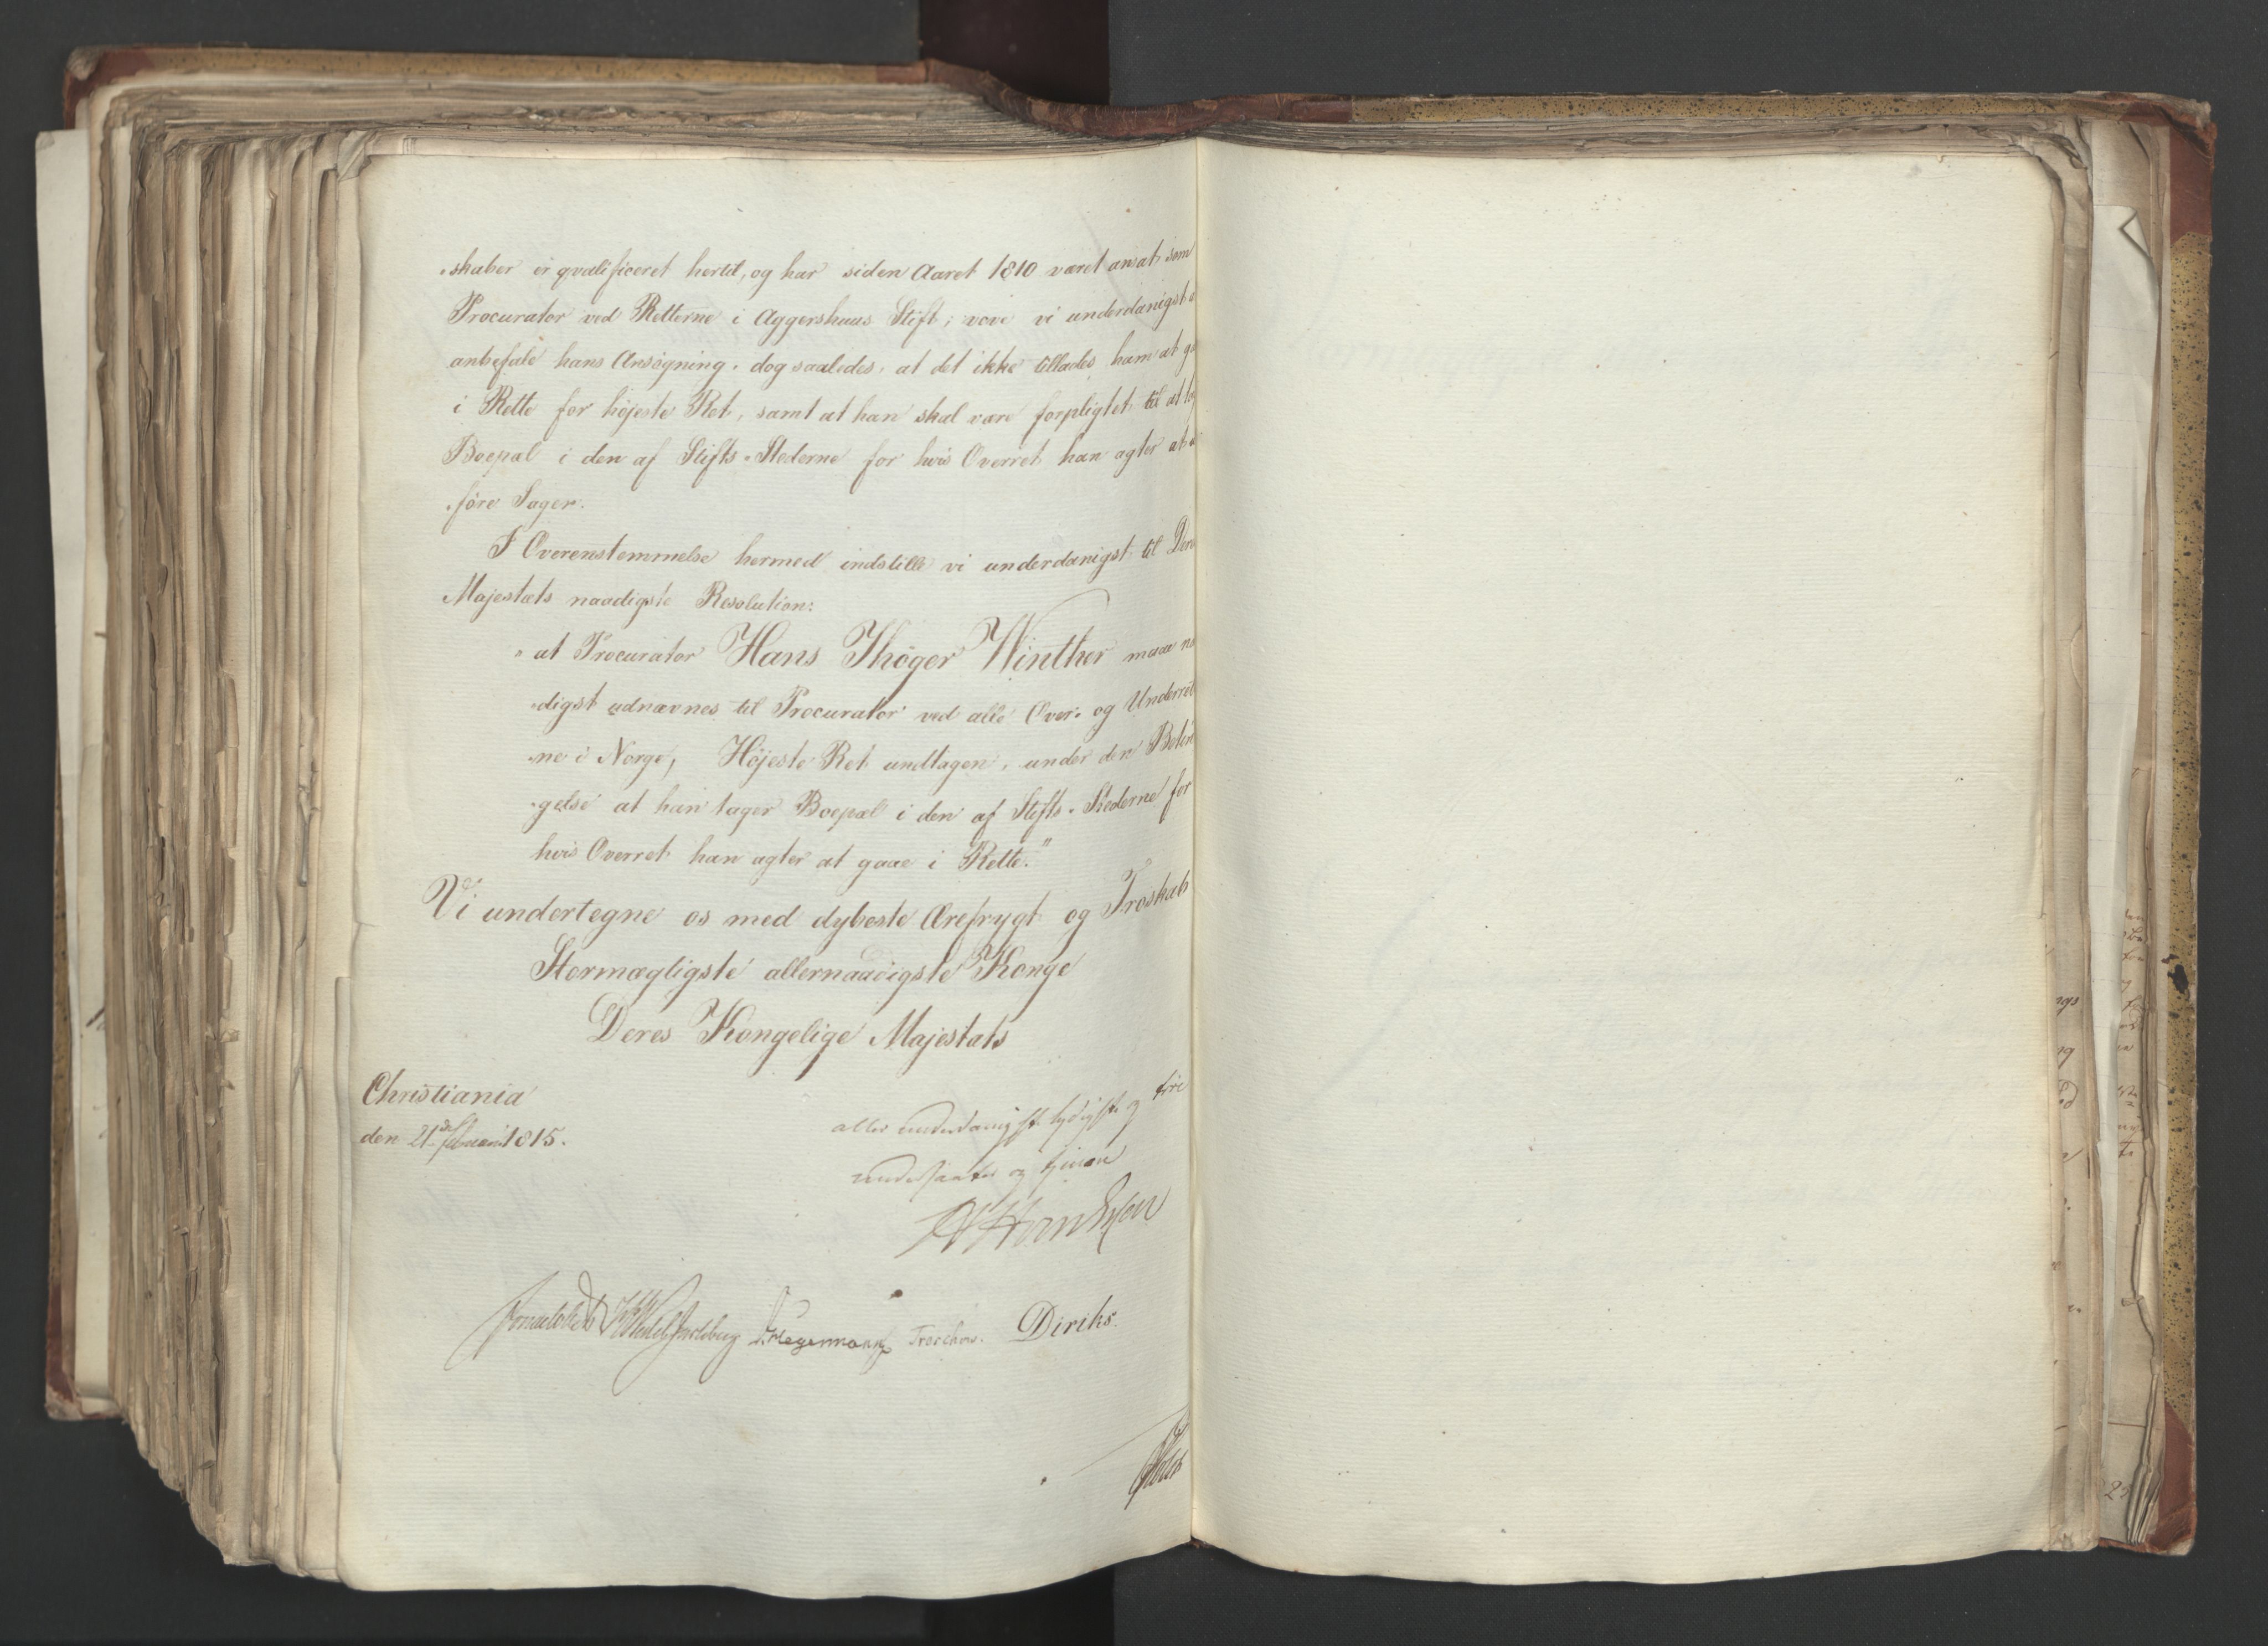 -skaber er qvalificeret hertil, og har siden Aaret 1810 været ansat som
Procurator ved Retterne i Aggershuus Stift; vove vi underdanigst a
anbefale hans Ansøgning, dog saaledes, at det ikke tillades ham at ga
i Rette for højeste Ret, samt at han skal være forpligtet til at ta
Boepæl i den af Stifts-Stederne for hvis Overret han agter at u
-føre Sager.
I Overenstemmelse hermed indstille vi underdanigst til Deres
Majestæts naadigste Resolution:
"at Procurator Hans Thøger Winther maae na
-digst udnævnes til Procurator ved alle Over- og Underret
-ne i Norge, Højeste Ret undtagen, under den Betin
-gelse at han tager Boepæl i den af Stifts-Stederne for
hvis Overret han agter at gaae i Rette."
Vi undertegne os med dybeste Ærefrygt og Troskab
Stormægtigste allernaadigste Konge
Deres Kongelige Majestæts
Christiania
den 21de Februarii 1815.
allerunderdanigste lydigste og troe
undersaatter og tjenere
Sommerhielm Wedel Jarlsberg D. Hegermann Treschow. Diriks.